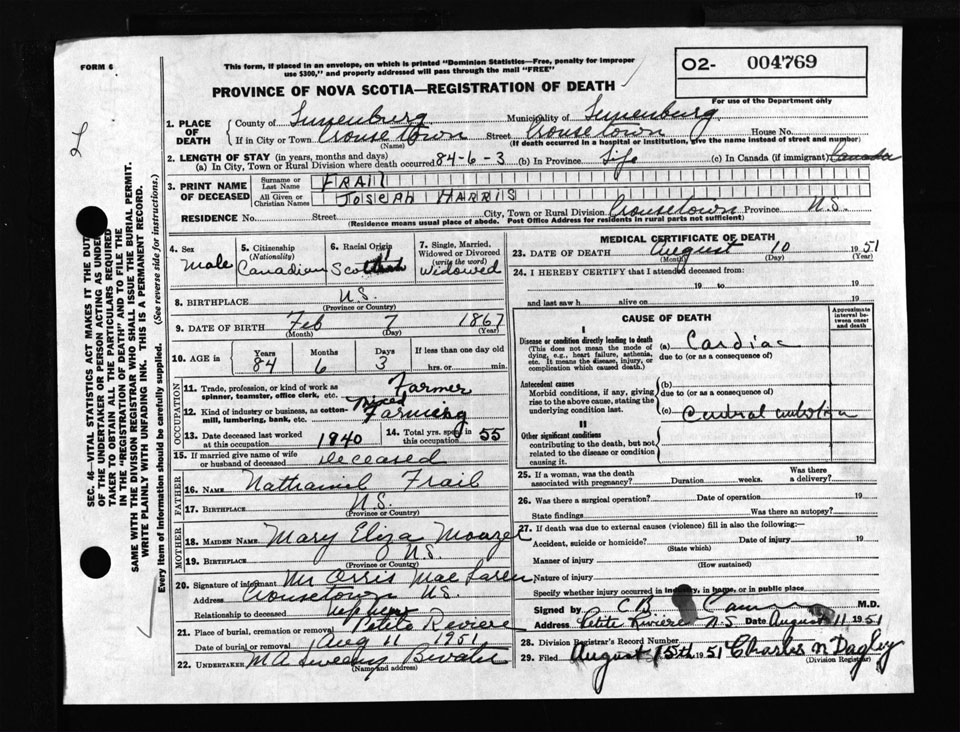 FORM 6
This form, if placed in an envelope, on which is printed "Dominion Statistics—Free, penalty for improper
use $300," and properly addressed will pass through the mail "FREE"
O2- 004769
For use of the Department only
PROVINCE OF NOVA SCOTIA—REGISTRATION OF DEATH
1. PLACE OF DEATH County of Lunenburg Municipality of Lunenburg
If in City or Town Crousetown Street Crousetown House No.
(Name) (If death occurred in a hospital or institution, give its name instead of street and number)
2. LENGTH OF STAY (in years, months and days)
(a) In City, Town or Rural Division where death occurred 84-6-3 (b) In Province Life (c) In Canada (if immigrant) Canada
3. PRINT NAME OF DECEASED Surname or Last Name FRAIL
All Given or Christian Names JOSEPH HARRIS
RESIDENCE No. Street City, Town or Rural Division Crousetown Province N.S.
(Residence means usual place of abode. Post Office Address for residents of rural parts not sufficient)
4. Sex Male
5. Citizenship (Nationality) Canadian
6. Racial Origin
7. Single, Married, Widowed or Divorced (write the word) Widowed
8. BIRTHPLACE N.S.
(Province or Country)
9. DATE OF BIRTH Feb 7 1867
(Month) (Day) (Year)
10. AGE in Years Months Days If less than one day old
84 6 3 hrs. or min.
OCCUPATION
11. Trade, profession, or kind of work as spinner, teamster, office clerk, etc. Farmer
12. Kind of industry or business, as cotton-mill, lumbering, bank, etc. Mixed Farming
13. Date deceased last worked at this occupation 1940
14. Total yrs. spent in this occupation 55
15. If married give name of wife or husband of deceased Deceased
FATHER
16. NAME Nathaniel Frail
17. BIRTHPLACE N.S.
(Province or Country)
MOTHER
18. MAIDEN NAME Mary Eliza
19. BIRTHPLACE N.S.
(Province or Country)
20. Signature of informant Mr Orris MacLaren
Address Crousetown N.S.
Relationship to deceased nephew
21. Place of burial, cremation or removal Petite Riviere
Date of burial or removal Aug 11 1951
22. UNDERTAKER M A Sweeny
(Name and address)
MEDICAL CERTIFICATE OF DEATH
23. DATE OF DEATH August 10 1951
(Month) (Day) (Year)
24. I HEREBY CERTIFY that I attended deceased from:
19 to 19
and last saw h alive on 19
CAUSE OF DEATH
Approximate interval between onset and death
I
Disease or condition directly leading to death
(This does not mean the mode of dying, e.g., heart failure, asthenia, etc. It means the disease, injury, or complication which caused death.)
(a) Cardiac
due to (or as a consequence of)
Antecedent causes
Morbid conditions, if any, giving rise to the above cause, stating the underlying condition last.
(b)
due to (or as a consequence of)
(c)
II
Other significant conditions
contributing to the death, but not related to the disease or condition causing it.
25. If a woman, was the death associated with pregnancy? Duration weeks. Was there a delivery?
26. Was there a surgical operation? Date of operation 19
State findings Was there an autopsy?
27. If death was due to external causes (violence) fill in also the following:—
Accident, suicide or homicide? Date of injury 19
(State which)
Manner of injury
(How sustained)
Nature of injury
Specify whether injury occurred in industry, in home, or in public place
Signed by M.D.
Address Petite Riviere N.S Date August 11 1951
28. Division Registrar's Record Number
29. Filed August 15th 1951 Charles N Dagley
(Division Registrar)
SEC. 46—VITAL STATISTICS ACT MAKES IT THE DUTY
OF THE UNDERTAKER OR PERSON ACTING AS UNDER-
TAKER TO OBTAIN ALL THE PARTICULARS REQUIRED
IN THE "REGISTRATION OF DEATH" AND TO FILE THE
SAME WITH THE DIVISION REGISTRAR WHO SHALL ISSUE THE BURIAL PERMIT.
WRITE PLAINLY WITH UNFADING INK. THIS IS A PERMANENT RECORD.
Every item of information should be carefully supplied. (See reverse side for instructions.)